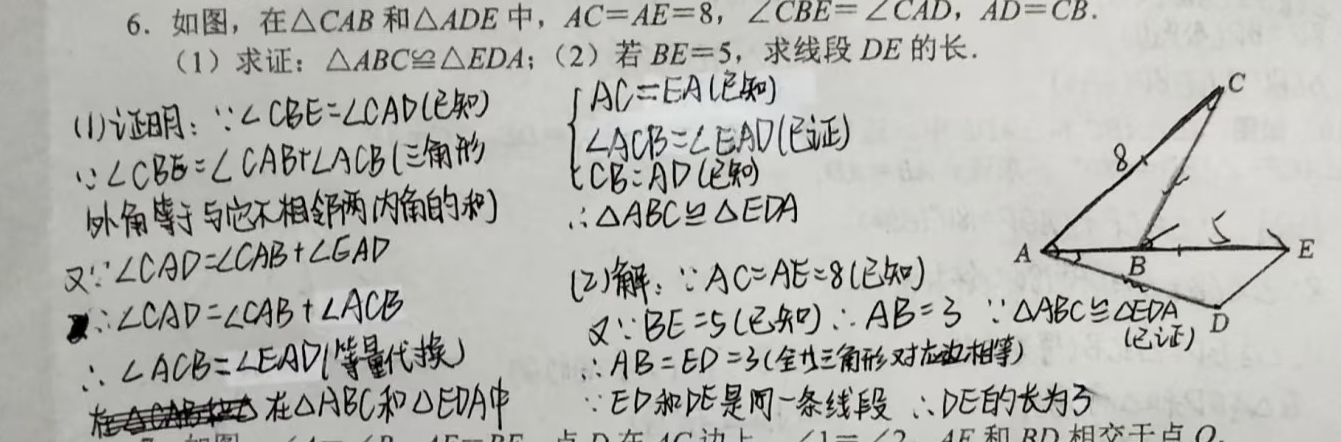 6. 如图，在△CAB和△ADE中，AC=AE=8，∠CBE=∠CAD，AD=CB.
（1）求证：△ABC≌△EDA；（2）若BE=5，求线段DE的长.
(1)证明：∵∠CBE=∠CAD(已知)
∵∠CBE=∠CAB+∠ACB(三角形
外角等于与它不相邻两内角的和)
又∵∠CAD=∠CAB+∠EAD
∴∠CAD=∠CAB+∠ACB
∴∠ACB=∠EAD(等量代换)
在△ABC和△EDA中
AC=EA(已知)
∠ACB=∠EAD(已证)
CB=AD(已知)
∴△ABC≌△EDA
(2)解：∵AC=AE=8(已知)
又∵BE=5(已知)∴AB=3 ∵△ABC≌△EDA
(已证)
∴AB=ED=3(全等三角形对应边相等)
∵ED和DE是同一条线段 ∴DE的长为3
C
8
5
A
B
E
D
7. 如图，∠A=∠B，AE=BE，点D在AC边上，∠1=∠2，AE和BD相交于点O.